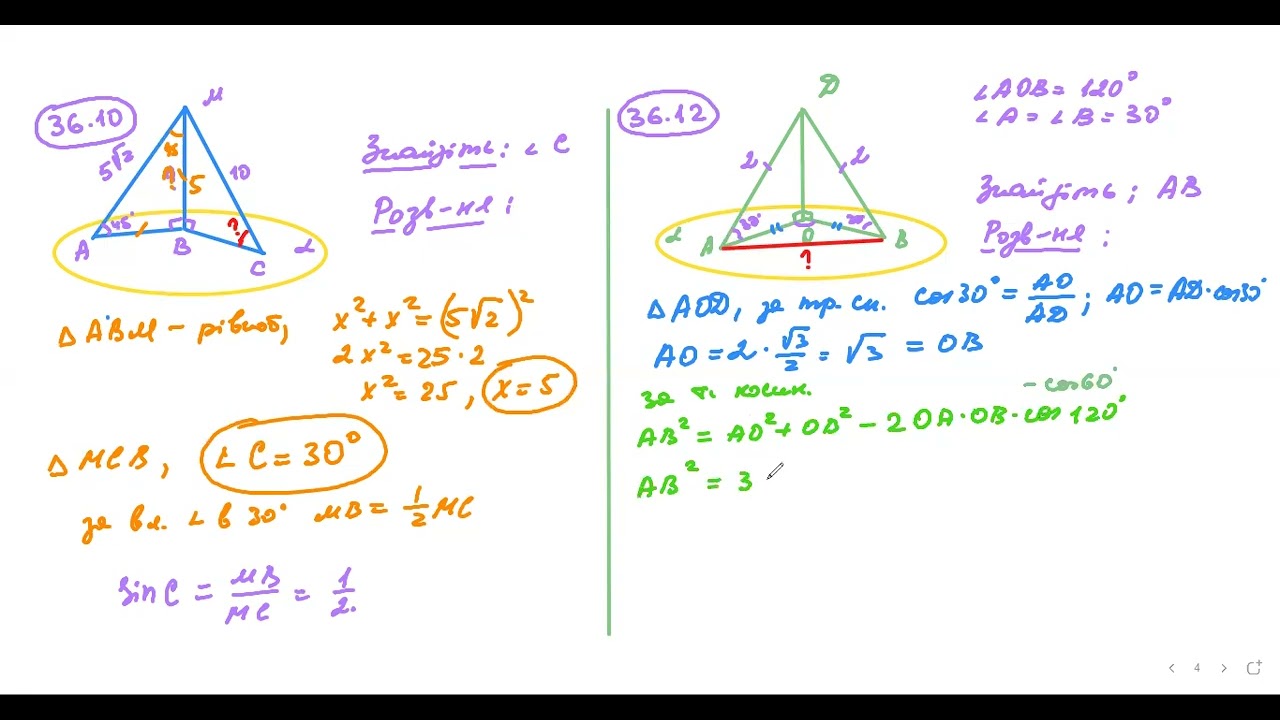 36.10
M
5√2
x
?
5
10
45°
?
A
B
C
α
Знайдіть: ∠ C
Розв-ня:
△ ABM – рівноб,
x² + x² = (5√2)²
2x² = 25 · 2
x² = 25, x = 5
△ MCB, ∠ C = 30°
за вл. ∠ в 30° MB = 1/2 MC
sin C = MB/MC = 1/2.
36.12
D
2
2
30°
30°
α
A
O
B
?
∠AOB = 120°
∠A = ∠B = 30°
Знайдіть; AB
Розв-ня:
△ AOD, за тр. сп. cos30° = AO/AD; AO = AD · cos30°
AO = 2 · √3/2 = √3 = OB
За т. косин.
– cos60°
AB² = AO² + OB² – 2 OA · OB · cos 120°
AB² = 3
4